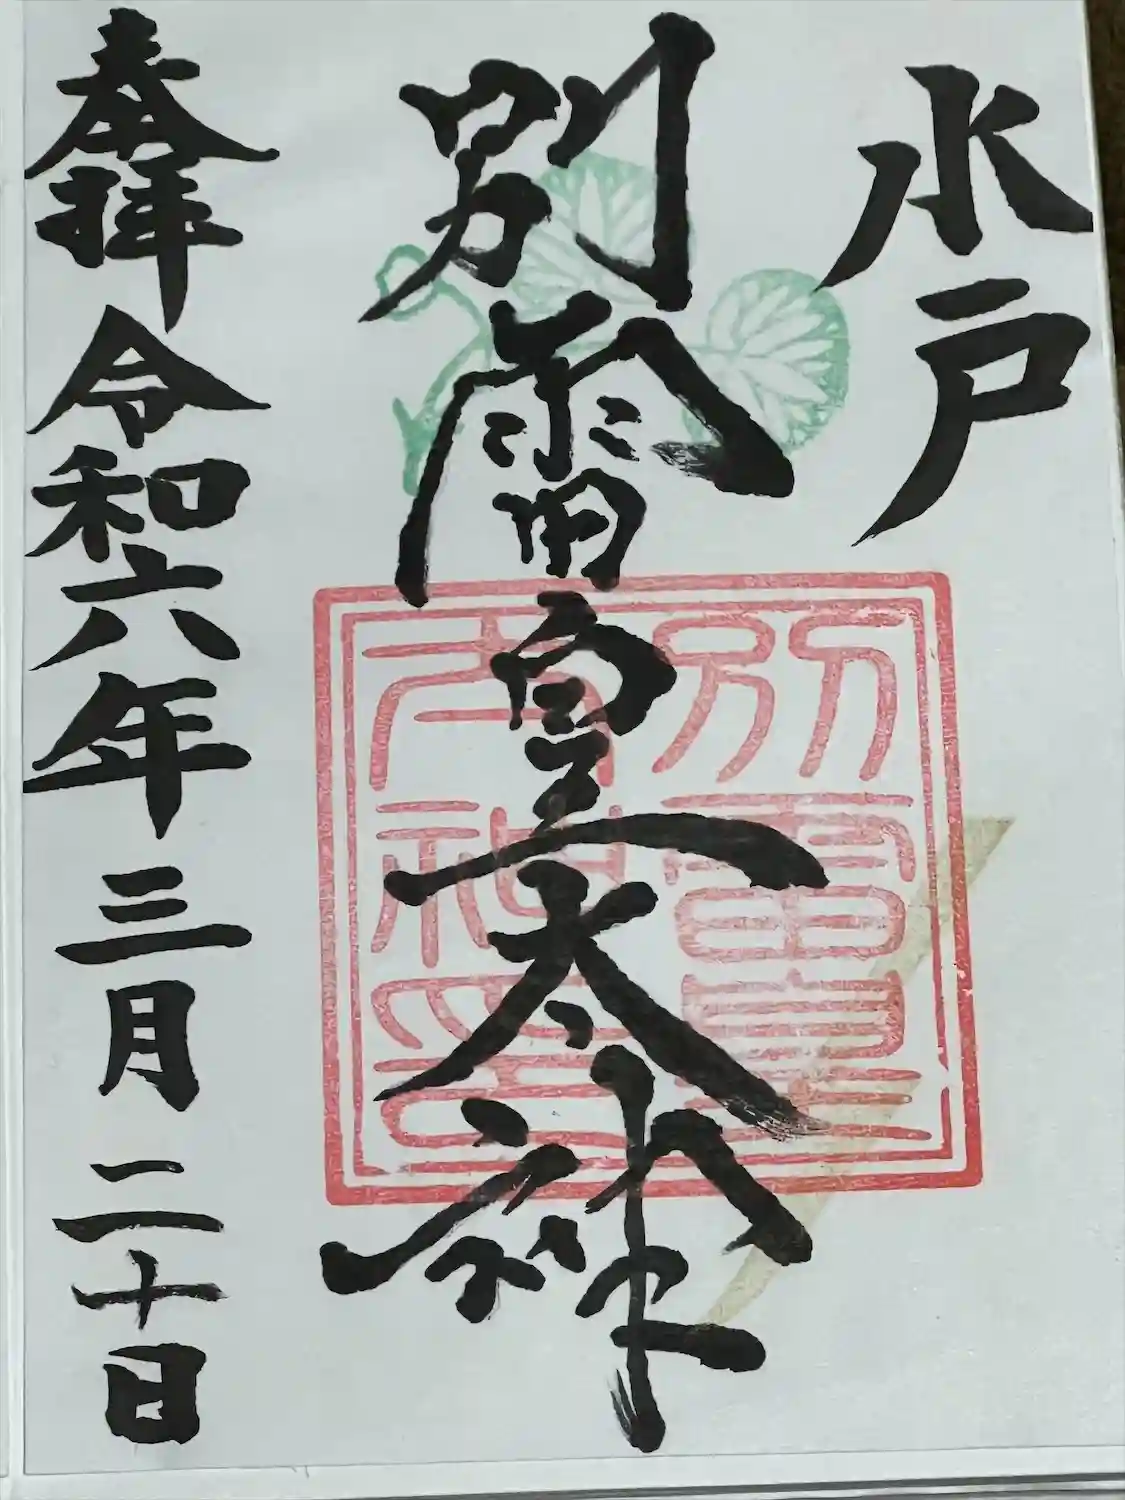 水戸
別雷皇太神
奉拝 令和六年三月二十日
別雷皇
太神印